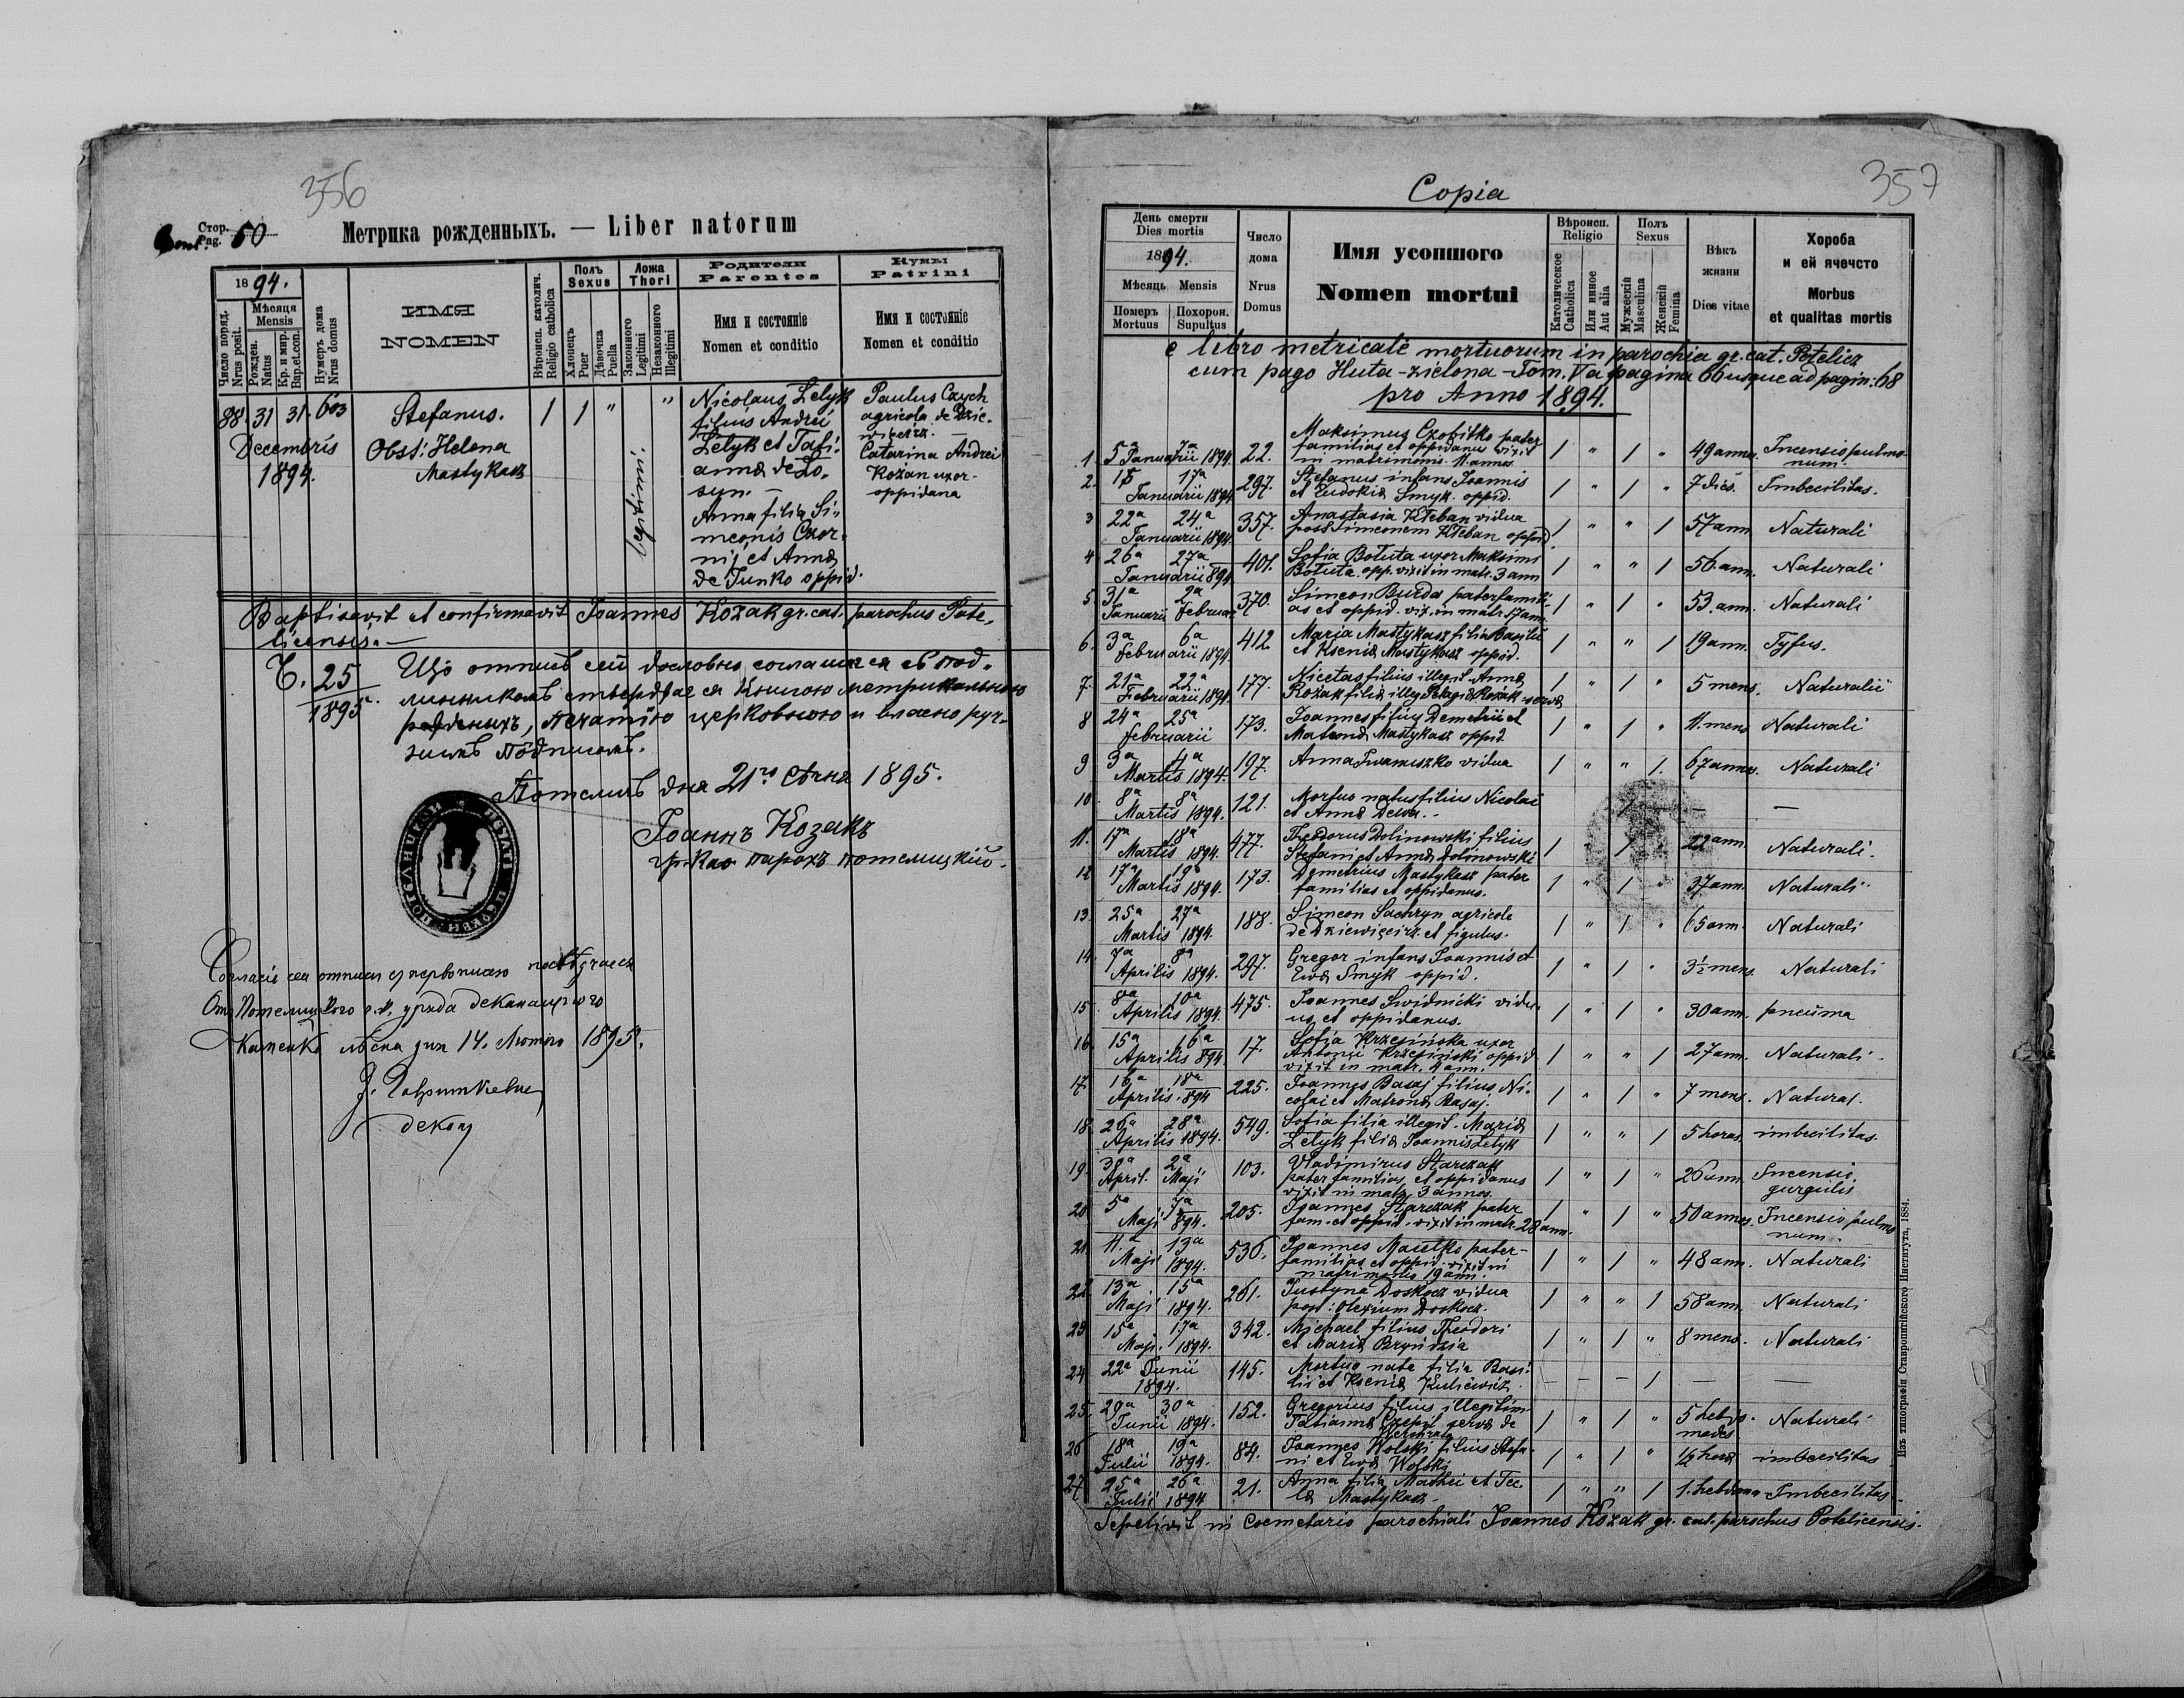 356
Cont. Стор. Pag. 50
Метрика рожденныхъ. — Liber natorum
1894.
Число поряд. Nrus posit.
Мѣсяця Mensis
Рожден. Natus
Кр. и мир. Bap. et con.
Нумеръ дома Nrus domus
ИМЯ
NOMEN
Вѣроисп. католич. Religio catholica
Полъ Sexus
Хлопецъ Puer
Дѣвочка Puella
Ложа Thori
Законного Legitimi
Незаконного Illegitimi
Родители Parentes
Имя и состоянiе
Nomen et conditio
Кумы Patrini
Имя и состоянiе
Nomen et conditio
88. 31 31. 603 Stefanus. 1 1 " legitimi. "
Decembris
1894.
Obst: Helena
Mastykasz
Nicolaus Lelyk
filius Andrei
Lelyk et Tati-
annæ de Lo-
syn. —
Anna filia Si-
meonis Czor-
nij et Annæ
de Junko oppid.
Paulus Czych
agricola de Dzie-
więcirz. —
Catarina Andrei
Kożan uxor-
oppidana
Baptisavit et confirmavit Joannes Kozak gr. cat. parochus Pote-
licensis. —
Ч. 25
1895.
Що отписъ сей дословно соглашаеся съ под-
линникомъ ствердждаеся Книгою метрикальною
рожденыхъ, печатію церковною и власноруч-
нымъ подписомъ.
Потеличъ дня 21го Сѣчня 1895.
Іоаннъ Козакъ
гр. Кат. парохъ потелицкій.
Согласіе сеи отписи съ первописею посвѣдчаеся
Отъ Потелицкого о. д. уряда деканального
Каменка лѣсна дня 14. Лютого 1895.
декан
357
Copia
День смерти
Dies mortis
1894.
Мѣсяць Mensis
Померъ Mortuus
Похорон. Supultus
Число дома Nrus Domus
Имя усопшого
Nomen mortui
Вѣроисп. Religio
Католическое Catholica
Или инное Aut alia
Полъ Sexus
Мужескій Masculina
Женскій Femina
Вѣкъ жизни
Dies vitae
Хороба и ей ячечсто
Morbus et qualitas mortis
e libro metricali mortuorum in parochia gr. cat. Potelicz
cum pago Huta-zielona - Tom. V a pagina 66 usque ad pagin: 68
pro Anno 1894.
1. 5a 7a Januarii 1894. 22. Maksimus Czobitko pater familias et oppidanus vixit in matrimonio 11 annos 1 " 1 " 49 annos. Incensio pulmonum.
2. 15 17a Januarii 1894 297. Stefanus infans Joannis et Eudokiæ Smyk. oppid. 1 " 1 " 7 dies. Imbecilitas.
3 22a 24a Januarii 1894. 357. Anastasia Kłeban vidua post Simeonem Kłeban oppid. 1 " " 1 57 ann. Naturali
4 26a 27a Januarii 894. 401. Sofia Botuta uxor Maksimi Botuta opp. vixit in matr. 3 ann 1 " " 1 56. ann. Naturali
5. 31a Januarii 2a Februar 370. Simeon Burda pater familias et oppid. vix. in matr. 17 ann. 1 " 1 " 53. ann. Naturali
6. 3a 6a Februarii 1894. 412 Maria Mastykasz filia Basilii et Kseniæ Mastykasz oppid. 1 " " 1 19 ann. Tyfus.
7. 21a 22a Februarii 1894. 177. Nicetas filius illegit. Annæ Kozak filiæ illeg. Pelagiæ Kozak servæ 1 " 1 " 5 mens. Naturali
8 24a 25a Februarii 173. Joannes filius Demetrii et Matronæ Mastykasz oppid. 1 " 1 " 11. mens Naturali
9 3a 4a Martis 1894. 197. Anna Iwaniszko vidua 1 " " 1. 67 annos. Naturali
10. 8a 8a Martis 1894. 121. Mortuo natus filius Nicolai et Annæ — —
11. 17a 18a Martis 1894. 477. Theodorus Dolinowski filius Stefani et Annæ Dolinowski 1 " 1 22 ann. Naturali.
12 17a 19a Martis 1894. 173. Demetrius Mastykasz pater familias et oppidanus. 1 " 1 " 37 ann. Naturali
13. 25a 27a Martis 1894. 188. Simeon Sachryn agricola de Dziewięcirz et figulus. 1 " 1 " 65 ann. Naturali
14. 7a 8a Aprilis 1894. 297. Gregor infans Joannis et Evæ Smyk oppid. 1 " 1 " 3½ mens. Naturali
15. 8a 10a Aprilis 1894. 475. Joannes Swidnicki viduus et oppidanus. 1 " 1 " 30 ann. pneuma
16. 15a 16a Aprilis 894. 17. Sofia Krzesińska uxor Antonii Krzesiński oppid vixit in matr. 4 ann. 1 " " 1 27 ann. Naturali
17. 16a 18a Aprilis. 894 225. Joannes Basaj filius Nicolai et Matronæ Basaj. 1 " 1 " 7 mens. Natural.
18. 26a 28a Aprilis 1894. 549. Sofia filia illegit. Mariæ Lelyk filiæ Joannis Lelyk 1 " " 1 5 horas. imbecilitas.
19. 30a April. 2a Maji 103. Vladimirus Starczak pater familias et oppidanus vixit in matr. 3 annos. 1 " 1 " 26 ann Incensio gurgulis
20. 5a 7a Maji 894. 205. Joannes Starczak pater fam. et oppid. vixit in matr. 28 ann. 1 " 1 " 50 annos. Incensio pulmonum.
21. 11.a 13a Maji 1894. 536. Joannes Maletko pater-familias et oppid. vixit in matrimonio 19 ann. 1 " 1 " 48 ann. Naturali
22. 13a 15a Maji 1894. 261. Justyna Doskocz vidua post: Olexium Doskocz. 1 " " 1 58 ann. Naturali
23 15a 17a Maji. 1894. 342. Michael filius Theodori et Mariæ Bryndzia 1 " 1 " 8 mens. Naturali
24 22a Junii 1894. 145. Mortuo nata filia Basilii et Kseniæ Kulicwicz. — — — 1 — —
25. 29a 30a Junii 1894. 152. Gregorius filius illegitim. Tatiannæ Czepil servæ de Werchrata 1 " 1 " 5 hebdomades Naturali
26 18a 19a Julii 1894. 84. Joannes Wolski filius Stefani et Evæ Wolski 1 " 1 " ½ hora imbecilitas
27 25a 26a Julii 1894 21. Anna filia Mathei et Teclæ Mastykasz. 1 " " 1 1. hebdoma Imbecilitas.
Sepelivit in Coemetario parochiali Joannes Kozak gr. cat. parochus Potelicensis.
Изъ типографiи Ставропигiйского Института, 1884.